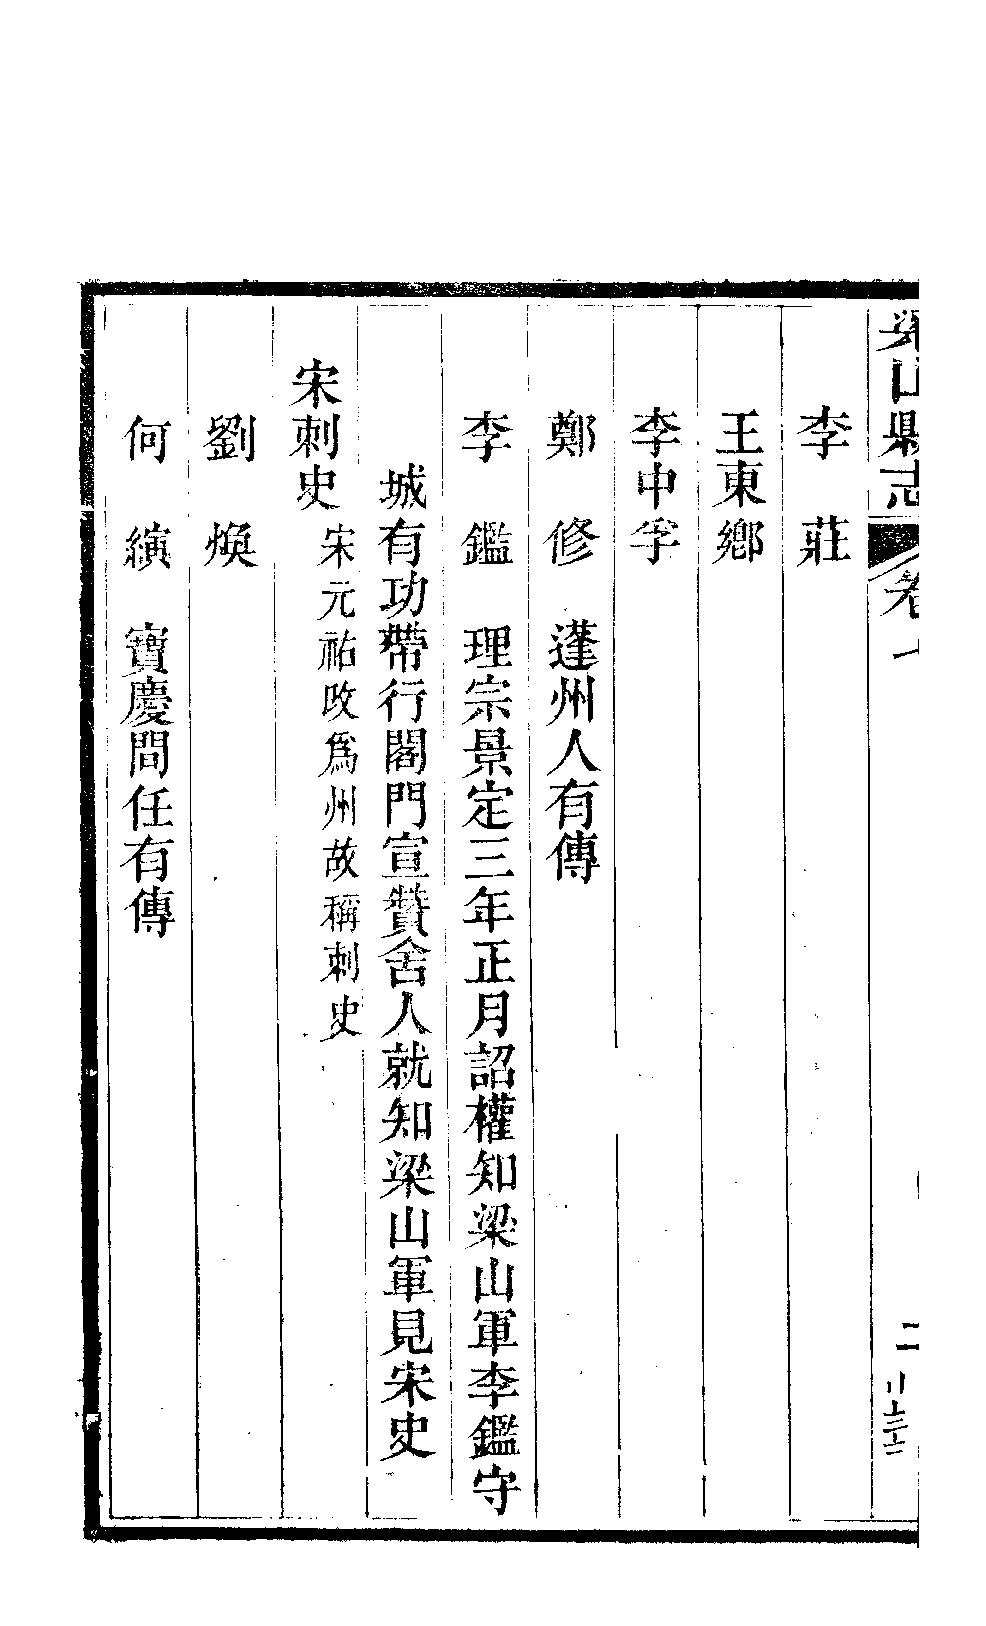 梁山縣志
卷
二
李　莊
王東鄉
李中孚
鄭　修　蓬州人有傳
李　鑑　理宗景定三年正月詔權知梁山軍李鑑守
城有功帶行閤門宣贊舍人就知梁山軍見宋史
宋刺史　宋元祐改爲州故稱刺史
劉　煥
何　縯　寶慶間任有傳